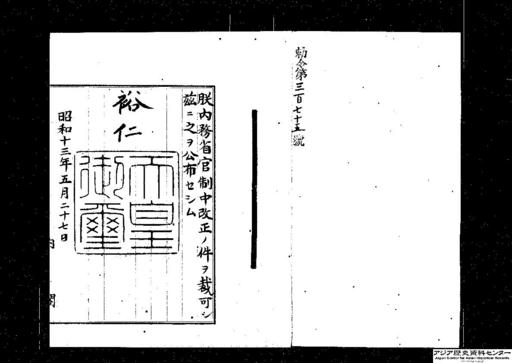 勅令第三百七十五號
朕內務省官制中改正ノ件ヲ裁可シ
茲ニ之ヲ公布セシム
裕仁
天皇御璽
昭和十三年五月二十七日
內閣
アジア歴史資料センター
Japan Center for Asian Historical Records